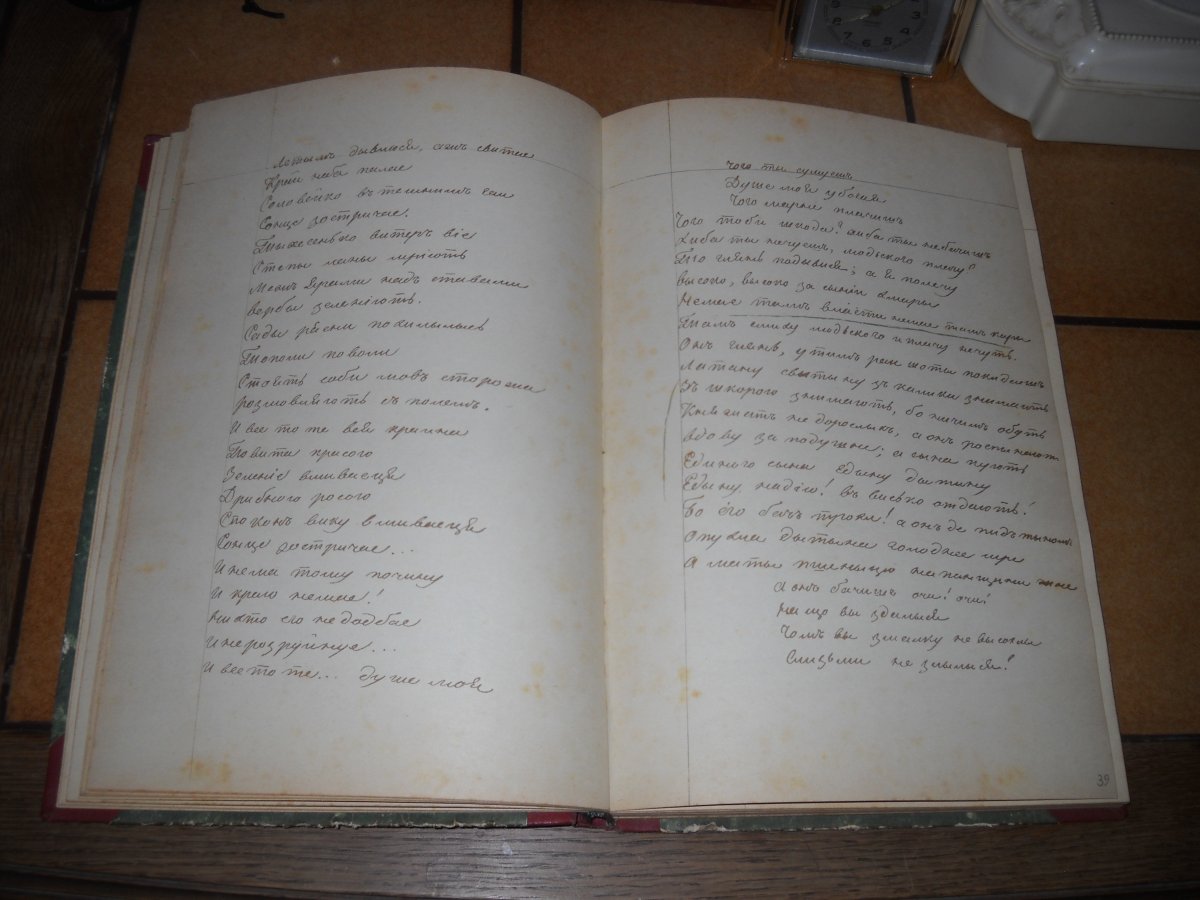 Летымъ дывлюся, ажъ свитае
Край неба палае
Соловейко въ темнимъ гаи
Сонце зостричае.
Тыхесенько витеръ віе
Степы ланы мріють
Межъ Ярами надъ ставами
верби зеленіють.
Сады рясни похилылысь
Тополи по воли
Стоять соби мовъ сторожи
розмовляють съ полемъ.
И все то те вся краина
Повита красою
Зеленіе вмываеця
Дрибною росою
Споконъ вику вмываеця
Сонце зостричае...
И нема тому почину
И краю немае!
нихто его не додбае
И не розруйнуе...
И все то те... душе моя
Чого ты сумуешъ
Душе моя убогая
Чого марне плачишъ
Чого тоби шкода? хиба ты не бачишъ
Хиба ты не чуешъ людського плачу?
То глянь подывися; а я полечу
высоко, высоко за сыніи хмары
Немае тамъ власти немае тамъ кары
Тамъ смиху людського и плачу не чуть.
Онъ глянь, у тимъ раи шо ты покидаешъ
Латану свытыну зъ калики знимають
Зъ шкорою знимають, бо ничимъ обуть
Княжатъ недорослыхъ, а онъ роспинають
вдову за подушне; а сына кують
Единого сына едыну дытыну
Едыну надію! въ вийсько оддають!
Бо его бачъ трохи! а онъ де пидъ тыномъ
Опухла дытына голоднее мре
А мати пшеныцю на панщини жне
А онъ бачишъ очи! очи!
на що вы здалыся
Чомъ вы змалку не высохли
Слизьми не злылыся!
39
8
7
6
5
4